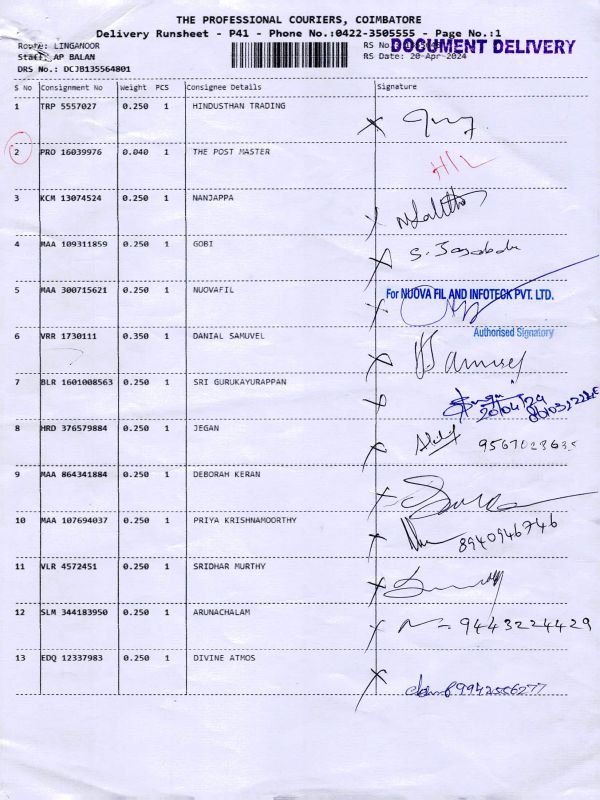 THE PROFESSIONAL COURIERS, COIMBATORE
Delivery Runsheet - P41 - Phone No.:0422-3505555 - Page No.:1
Route: LINGANOOR
RS No.:
DOCUMENT DELIVERY
Staff: AP BALAN
RS Date: 20-Apr-2024
DRS No.: DCJB135564801
S No Consignment No Weight PCS Consignee Details Signature
1 TRP 5557027 0.250 1 HINDUSTHAN TRADING
2 PRO 16039976 0.040 1 THE POST MASTER
3 KCM 13074524 0.250 1 NANJAPPA
4 MAA 109311859 0.250 1 GOBI
5 MAA 300715621 0.250 1 NUOVAFIL
For NUOVA FIL AND INFOTECK PVT. LTD.
Authorised Signatory
6 VRR 1730111 0.350 1 DANIAL SAMUVEL
7 BLR 1601008563 0.250 1 SRI GURUKAYURAPPAN
20/04/24
8 HRD 376579884 0.250 1 JEGAN
9567023635
9 MAA 864341884 0.250 1 DEBORAH KERAN
10 MAA 107694037 0.250 1 PRIYA KRISHNAMOORTHY
8940946746
11 VLR 4572451 0.250 1 SRIDHAR MURTHY
12 SLM 344183950 0.250 1 ARUNACHALAM
9443224429
13 EDQ 12337983 0.250 1 DIVINE ATMOS
9942556277